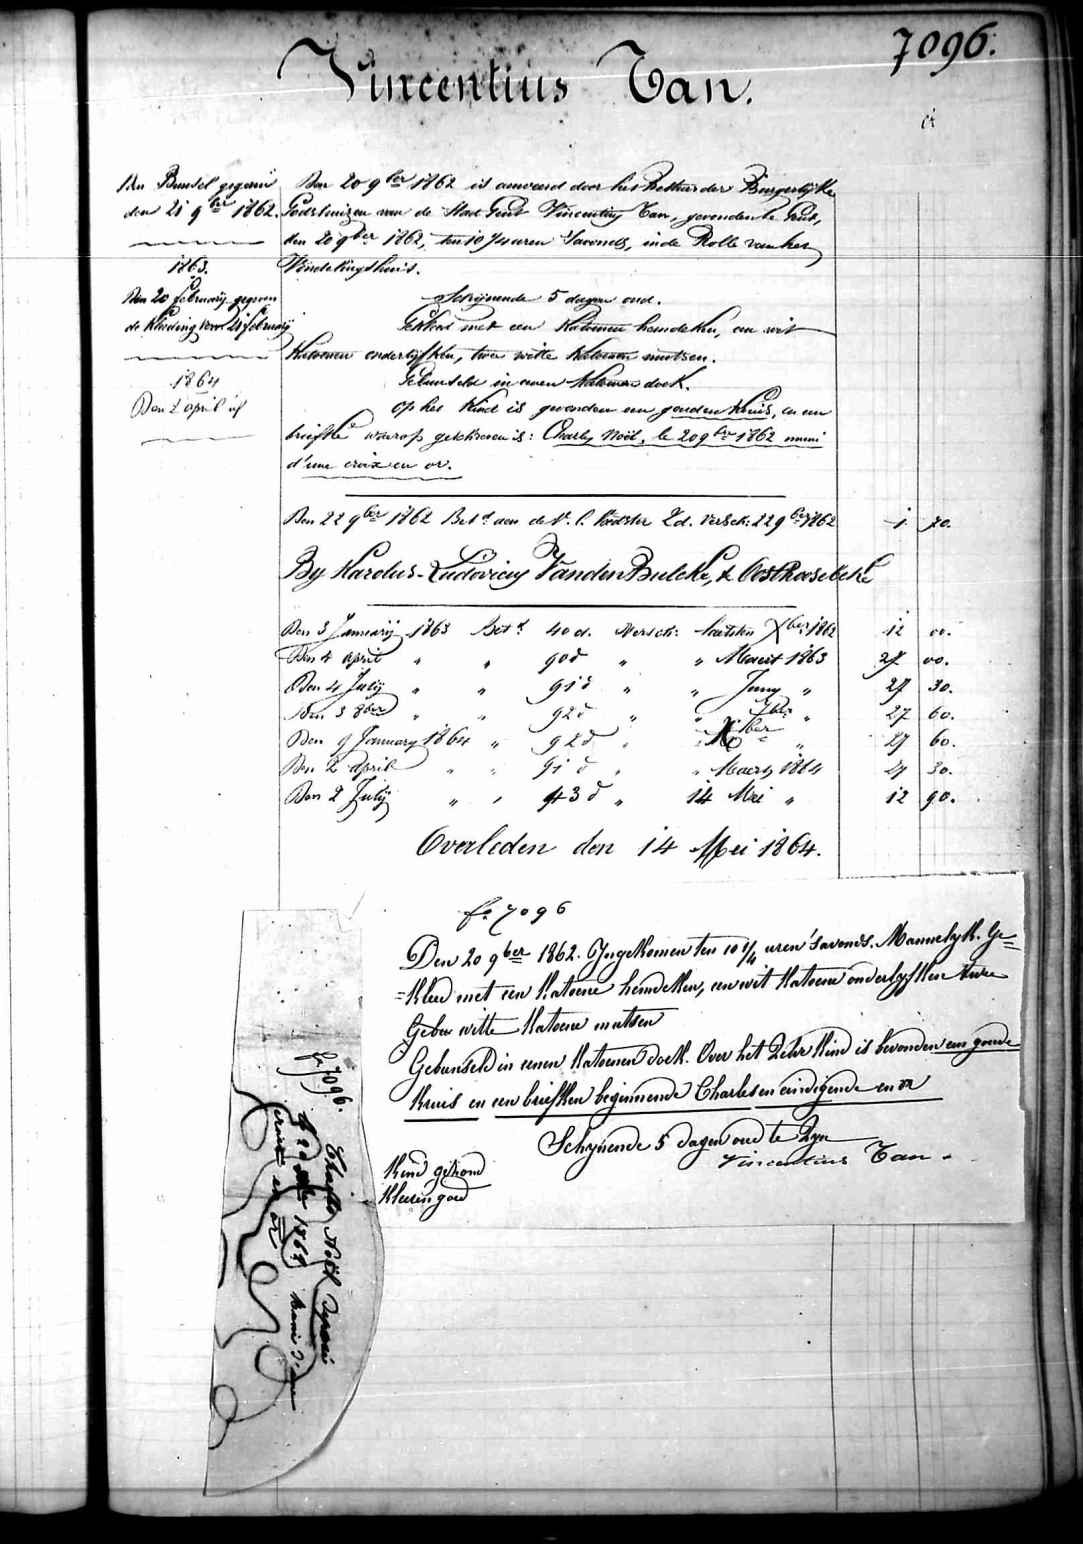 7096.
Vincentius Tan.
Den Bunsel gegeven
den 21 9ber 1862.
1863.
Den 20 february gegeven
de kleeding voor 21 february
1864
Den 2 april id
Den 20 9ber 1862 is aenveerd door het Bestuur der Burgerlijke
Godshuizen van de Stad Gent Vincentius Tan, gevonden te Gent,
den 20 9ber 1862, ten 10 1/4 uren 's avonds, in de Rolle van het
Vindelingshuis.
Schijnende 5 dagen oud.
Gekleed met een katoenen hemdeken, een wit
katoenen onderlijfken, twee witte katoenen mutsen.
Gebunseld in eenen katoenen doek.
Op het kind is gevonden een gouden kruis, en een
briefke waerop geschreven is: Charles Noël, le 20 9bre 1862 muni
d'une croix en or.
Den 22 9ber 1862 Bet. aen de V. C. Voedster 2 d. versch: 22 9ber 1862 1 20.
By Karolus-Ludovicus Vanden Bulcke, te Oostroosebeke
Den 3 January 1863 Bet. 40 d. Versch: laetsten Xber 1862 12 00.
Den 4 april " " 90 d " " Maert 1863 27 00.
Den 4 July " " 91 d " " Juny " 27 30.
Den 3 8ber " " 92 d " " 7ber " 27 60.
Den 9 January 1864 " 92 d " " Xber " 27 60.
Den 2 april " " 91 d " " Maert 1864 27 30.
Den 2 July " " 43 d " 14 Mei " 12 90.
Overleden den 14 Mei 1864.
fo 7096
Den 20 9ber 1862. Ingekomen ten 10 1/4 uren 's avonds. Mannelyk. Ge=
=kleed met een katoene hemdeken, een wit katoene onderlyfken twee
witte katoene mutsen
Gebunseld in eenen katoenen doek. Over het zelve kind is bevonden een goude
kruis en een briefken beginnende Charles en eindigende en or
Schynende 5 dagen oud te zyn
Vincentius Tan.
Kind gezond
kleeren goed
fo 7096.
Charles Noël
le 20 9bre 1862 muni d'une
croix en or